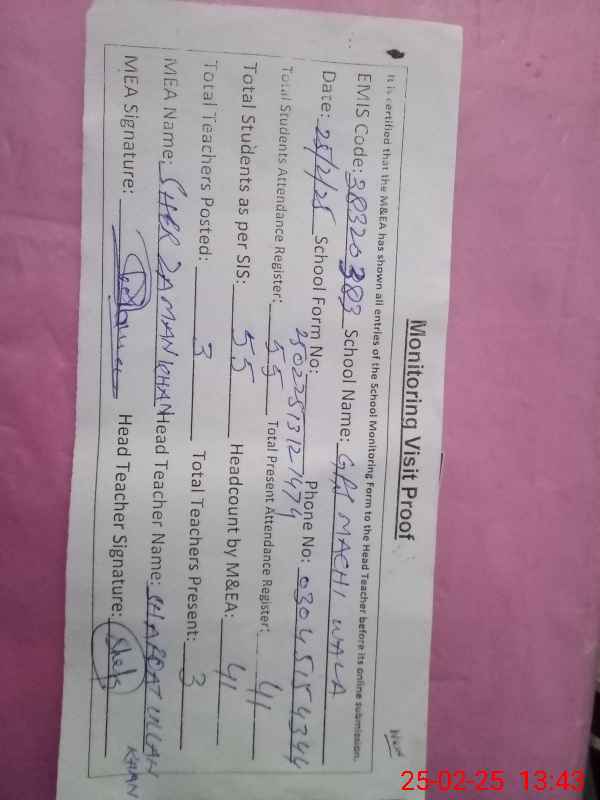 Monitoring Visit Proof
It is certified that the M&EA has shown all entries of the School Monitoring Form to the Head Teacher before its online submission.
EMIS Code: 38320383 School Name: G.P.S MACHI WALA
Date: 25/2/25 School Form No: 250225131271479 Phone No: 03045154344
Total Students Attendance Register: 55 Total Present Attendance Register: 41
Total Students as per SIS: 55 Headcount by M&EA: 41
Total Teachers Posted: 3 Total Teachers Present: 3
MEA Name: SHER ZAMAN KHAN Head Teacher Name: KHAN
MEA Signature: Head Teacher Signature:
25-02-25 13:43